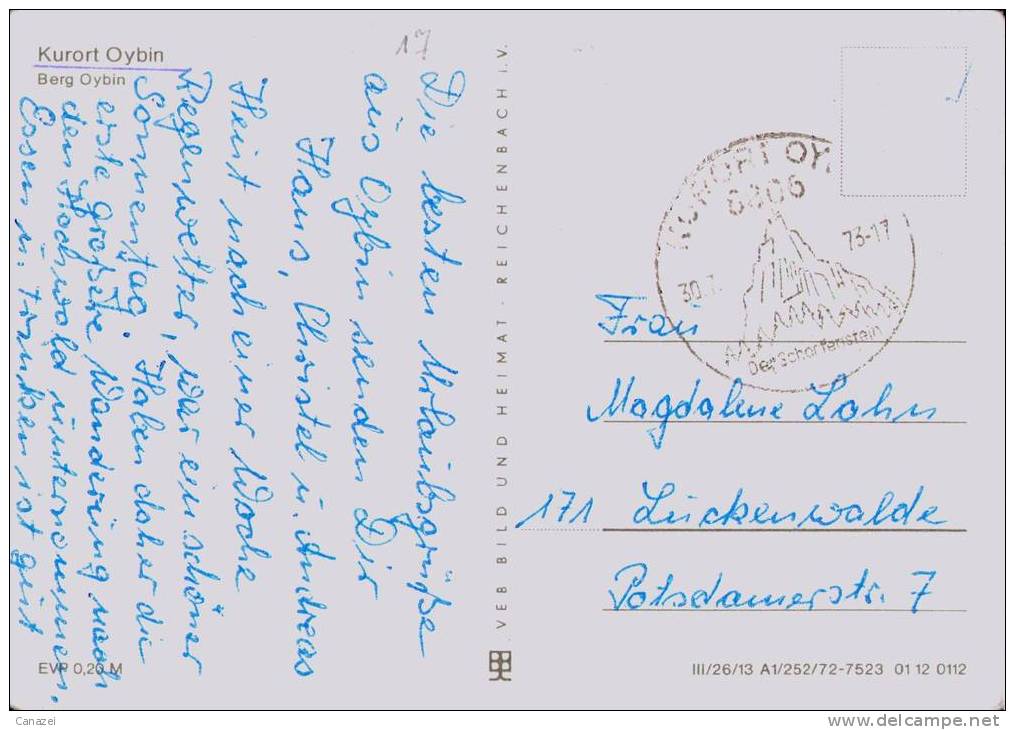 Kurort Oybin
Berg Oybin
17
Die besten Urlaubsgrüße
aus Oybin senden Dir
Hans, Christel u. Andreas
Heut nach einer Woche
Regenwetter, war ein schöner
Sonnentag. Haben daher die
erste größere Wanderung nach
dem Hochwald unternommen.
Essen u. trinken ist gut
EVP 0,20 M
VEB BILD UND HEIMAT · REICHENBACH i.V.
KURORT OY
6806
30.7. 73-17
Der Scharfenstein
Frau
Magdalene Lahn
171 Luckenwalde
Potsdamerstr. 7
III/26/13 A1/252/72-7523 01 12 0112
Canazei
www.delcampe.net